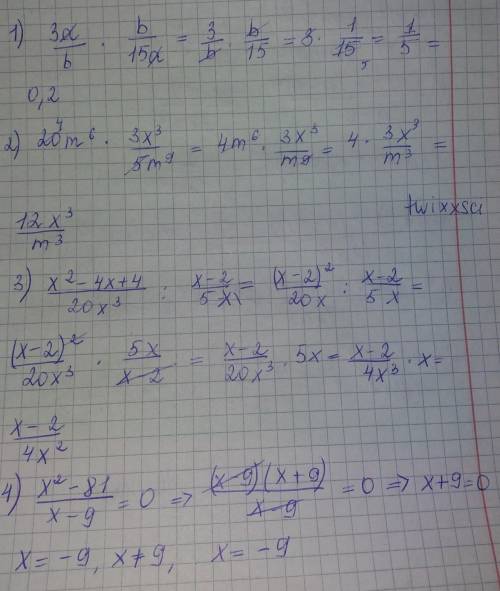 1) 3a/b · b/15a = 3/b · b/15 = 3 · 1/15 5 = 1/5 =
0,2
2) 20 4 m⁶ · 3x³/5m⁹ = 4m⁶ · 3x³/m⁹ = 4 · 3x³/m³ =
twixxsa
12x³/m³
3) x²-4x+4/20x³ : x-2/5x = (x-2)²/20x : x-2/5x =
(x-2)²/20x³ · 5x/x-2 = x-2/20x³ · 5x = x-2/4x³ · x =
x-2/4x²
4) x²-81/x-9 = 0 => (x-9)(x+9)/x-9 = 0 => x+9=0
x = -9, x ≠ 9, x = -9